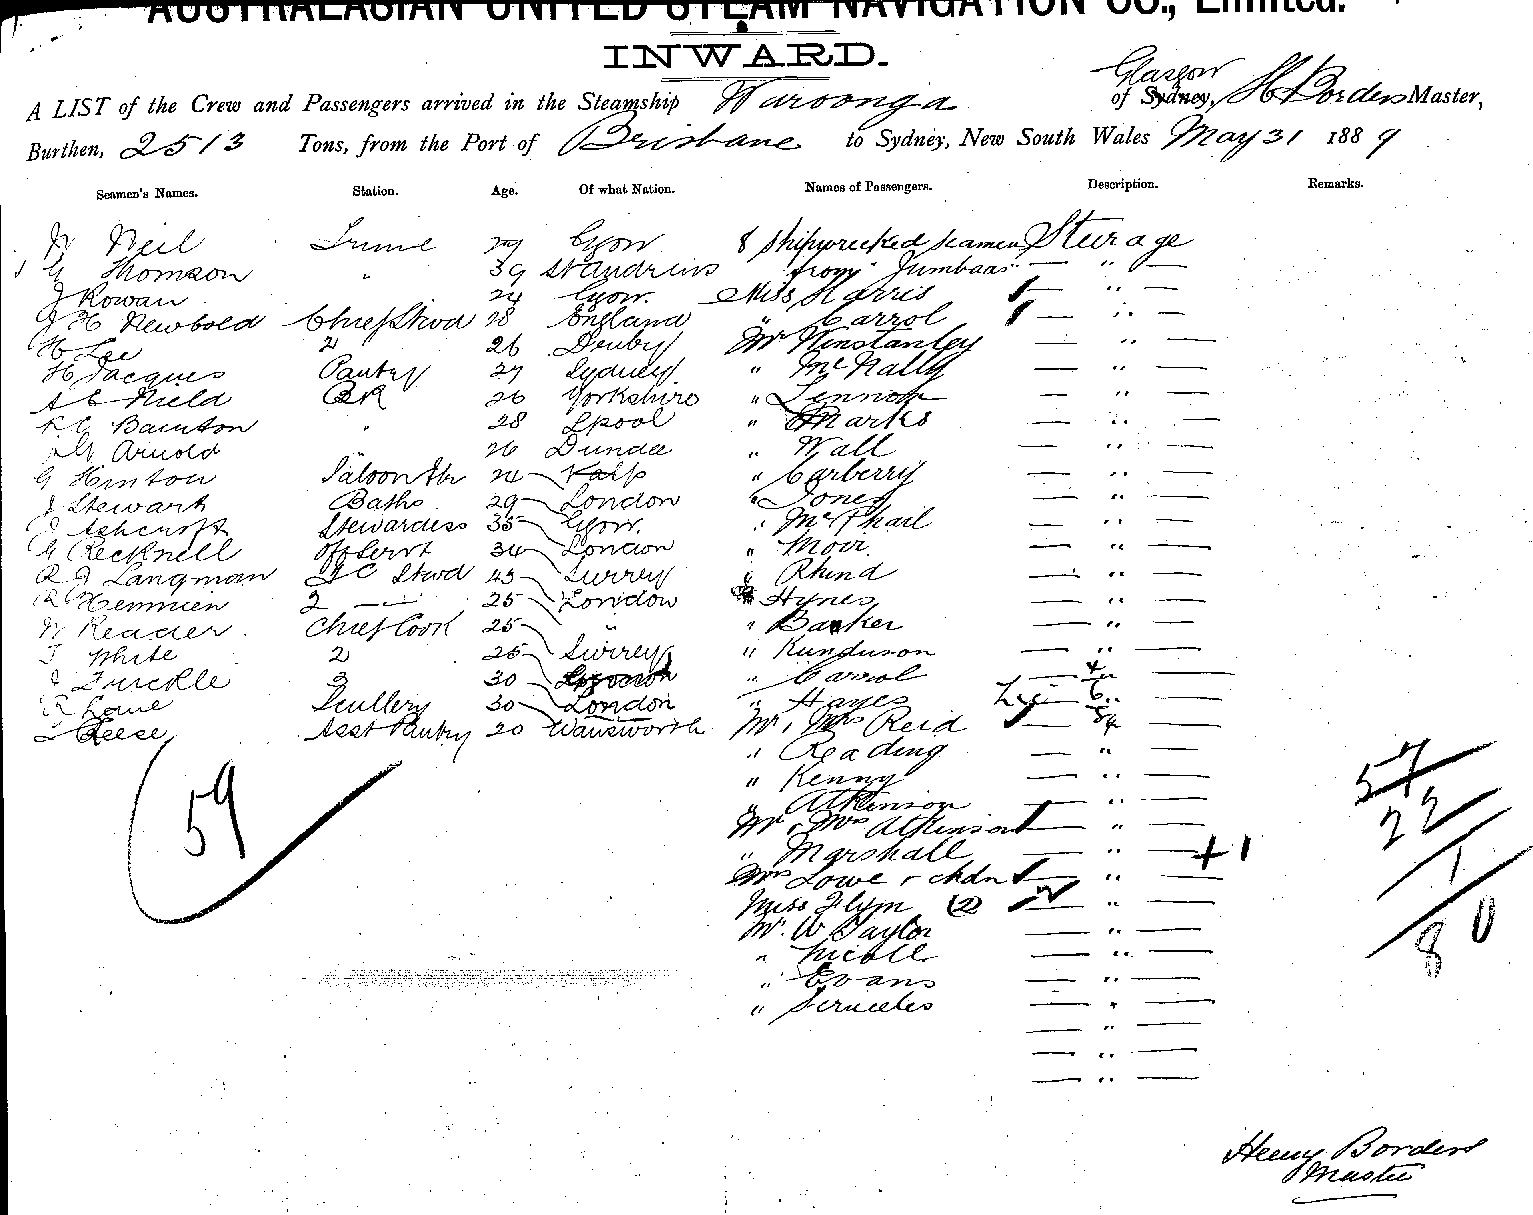 AUSTRALASIAN UNITED STEAM NAVIGATION CO., Limited.
INWARD.
Glasgow
A LIST of the Crew and Passengers arrived in the Steamship Waroonga of Sydney, H Borders Master,
Burthen, 2513 Tons, from the Port of Brisbane to Sydney, New South Wales May 31 1889
Seamen's Names. Station. Age. Of what Nation. Names of Passengers. Description. Remarks.
W Neil 8 Shipwrecked Seamen Sturage
G Thomson " 39 St Andrews from " —
J Rowan 24 Miss Harris — " —
J H Newbold Chief Stwd 28 England " Carrol — " —
H Lee 2 26 Mr Winstanley — " —
H Jacques Pantry 27 Sydney " McNally — " —
A E Nield 26 Yorkshire " Lennon — " —
Bainton " 28 Lpool " Marks — " —
Arnold 26 Dundee " Wall — " —
G Hinton Saloon 24 " Carberry — " —
J Stewart Baths 29 London " Jones — " —
J Ashcroft Stewardess 35 " McPhail — " —
Recknell Off Servt 34 London " Moir — " —
R J Langman Stwd 43 Surrey " Rhind — " —
R 2 — 25 London Hynes — " —
W Reader Chief Cook 25 " " Barker — " —
T White 2 25 Surrey " — " —
J Truckle 3 30 " Carrol
R Lane Scullery 30 London " Hayes
Reese Asst Pantry 20 Wansworth Mr & Mrs Reid
" Reading — " —
" Kenny — " —
" Atkinson — " —
Mr & Mrs Atkinson — " —
" Marshall — " — +1
Mrs Lowe & chdn — " —
Miss Flynn (2) — " —
Mr W Taylor — " —
" Nicoll — " —
" Evans — " —
" — " —
— " —
— " —
— " —
59
57
22
1
80
Henry Borders
Master